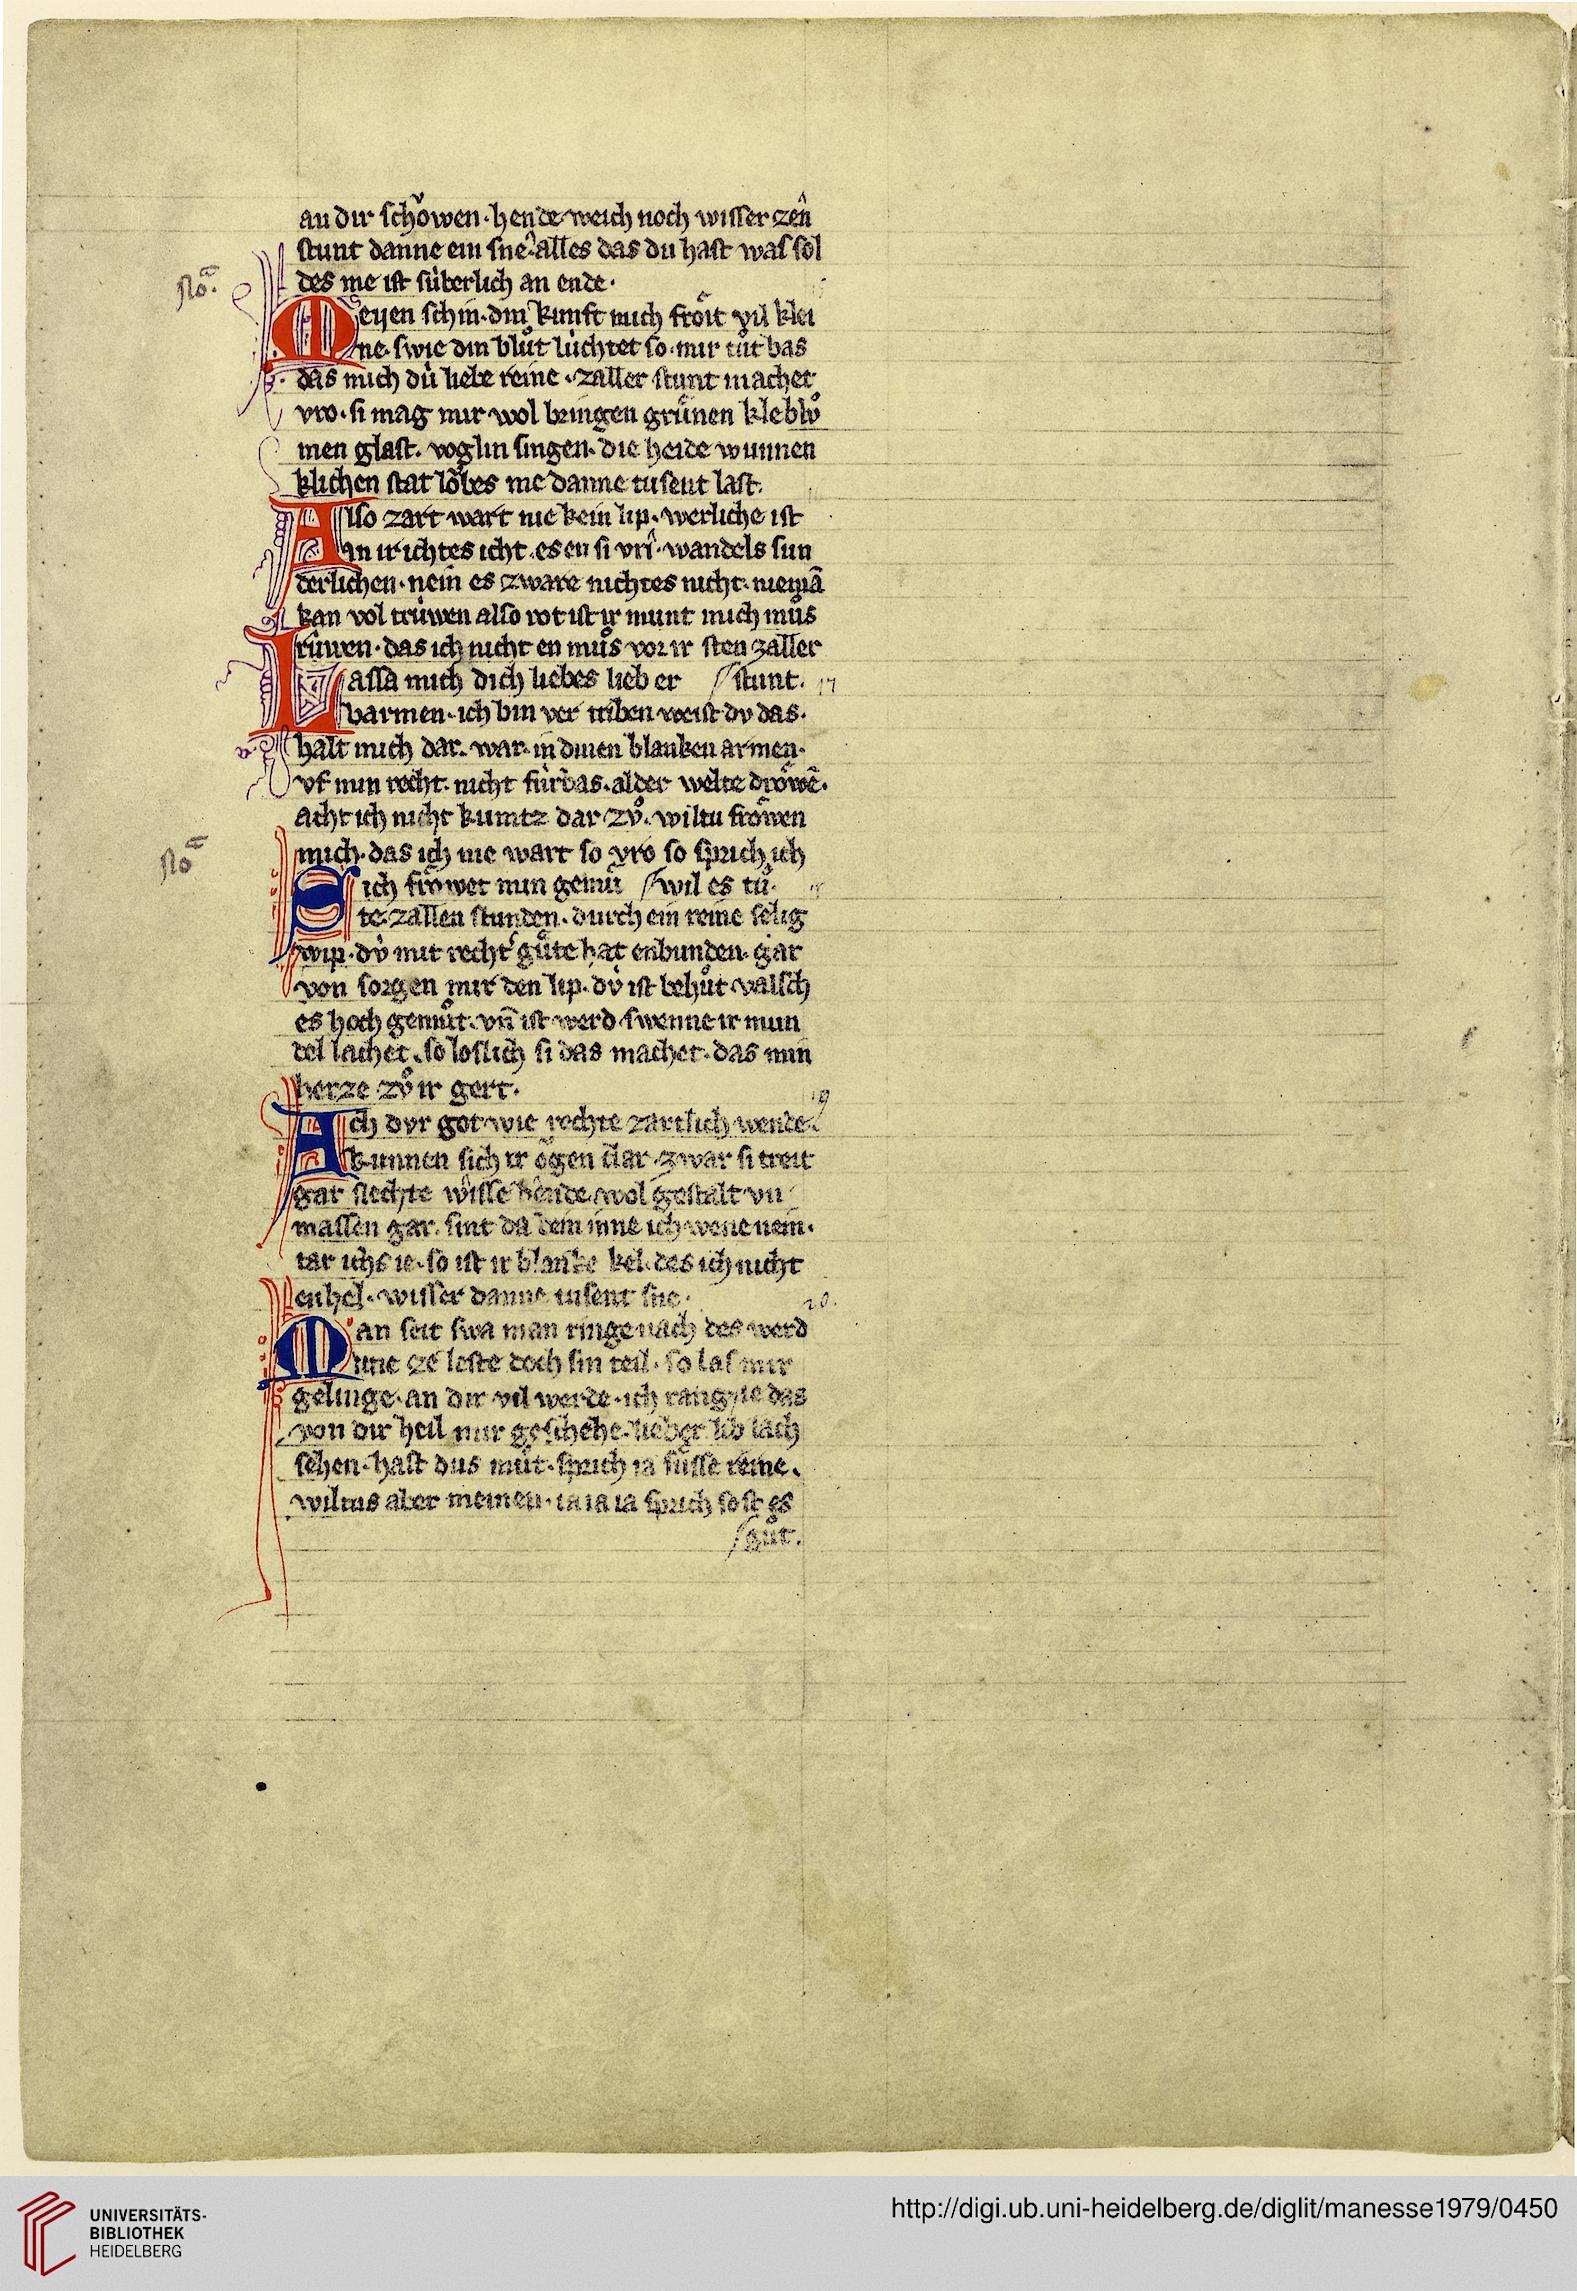 an dir schoͮwen · hende weich noch wisser zen
stunt danne ein sne · alles das du hast was sol
des me ist súberlich an ende ·
No
Meyen schin · din kunft mich froͤit vil klei
ne · swie din bluͦt lúchtet so · mir tuͦt bas
das mich dú liebe reine · zaller stunt machet
vro · si mag mir wol bringen gruͤnen kle bluͦ
men glast · voglin singen · die heide wunnen
klichen stat loͮbes me danne tusent last ·
Also zart wart nie kein lip · werliche ist
an ir ichtes icht · es en si vri · wandels sun
derlichen · nein es zware nichtes nicht · niemā
kan vol trúwen also rot ist ir munt mich muͦs
trúwen · das ich nicht en muͦs vor ir sten zaller
stunt · 17
Lassa mich dich liebes lieb er
barmen · ich bin ver triben weist dv das ·
halt mich dar · war · in dinen blanken armen ·
vf min recht · nicht fúrbas · al der welte droͤwē ·
acht ich nicht kumtz dar zvͦ · wiltu froͤwen
No
mich · das ich nie wart so vro so sprich ich
wil es tuͦ ·
Sich froͤwet min gemuͤ
te · zallen stunden · durch ein reine selig
wip · dv́ mit recht guͤte hat enbunden · gar
von sorgen mir den lip · dv́ ist behuͦt valsch
es hoch gemuͦt · vn̄ ist werd swenne ir mun
del lachet · so loslich si das machet · das min
herze zvͦ ir gert ·
19
Ach dvr got wie rechte zartlich wende
kunnen sich ir oͮgen clar · zwar si treit
gar slechte wisse hende · wol gestalt vn̄
massen gar · sint da dem inne ich wene nein ·
tar ichs ie · so ist ir blanke kel · des ich nicht
enhel · wisser danne tusent sne ·
20.
Man seit swa man ringe nach des werd
inne ze leste doch sin teil · so las mir
gelinge · an dir vil werde · ich rang ie das
von dir heil mir geschehe · lieber lib lach
sehen · hast dus muͦt · sprich ia suͤsse reine ·
wiltus aber meinen · ia ia ia sprich so ist es
guͦt ·
UNIVERSITÄTS-
BIBLIOTHEK
HEIDELBERG
http://digi.ub.uni-heidelberg.de/diglit/manesse1979/0450